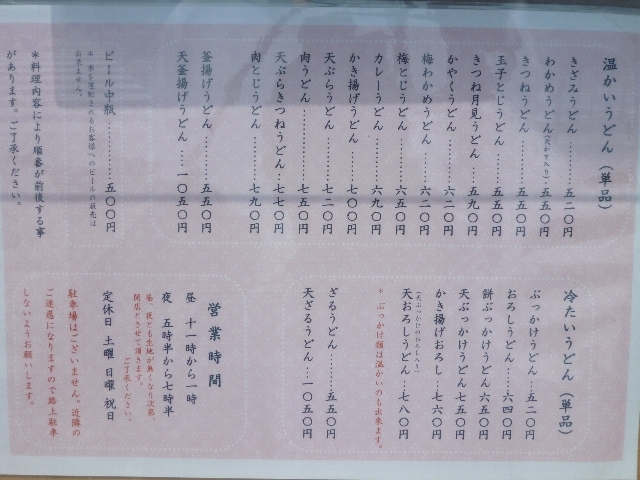 温かいうどん（単品）
きざみうどん………五二〇円
わかめうどん(天かす入り)五五〇円
きつねうどん………五五〇円
玉子とじうどん……五五〇円
きつね月見うどん…五九〇円
かやくうどん………六二〇円
梅わかめうどん……六二〇円
梅とじうどん………六五〇円
カレーうどん………六九〇円
かき揚げうどん……七〇〇円
天ぷらうどん………七二〇円
肉うどん……………七五〇円
天ぷらきつねうどん…七七〇円
肉とじうどん………七九〇円
釜揚げうどん………五五〇円
天釜揚げうどん……一〇五〇円
ビール中瓶…………五〇〇円
＊車を運転されるお客様へのビールの販売は
出来ません。
＊料理内容により順番が前後する事
があります。ご了承ください。
冷たいうどん（単品）
ぶっかけうどん…五二〇円
おろしうどん……六四〇円
餅ぶっかけうどん六五〇円
天ぶっかけうどん七五〇円
かき揚げおろし…七六〇円
(天ぶっかけのおろし入り)
天おろしうどん…七八〇円
＊ぶっかけ類は温かいのも出来ます。
ざるうどん………五五〇円
天ざるうどん……一〇五〇円
営業時間
昼 十一時から一時
夜 五時半から七時半
昼、夜とも生地が無くなり次第
閉店とさせて頂きます。
ご了承ください。
定休日 土曜 日曜 祝日
駐車場はございません。近隣の
ご迷惑になりますので路上駐車
しないようお願いします。